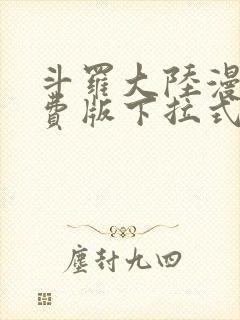 斗羅大陸漫
費版下拉式
塵封九四